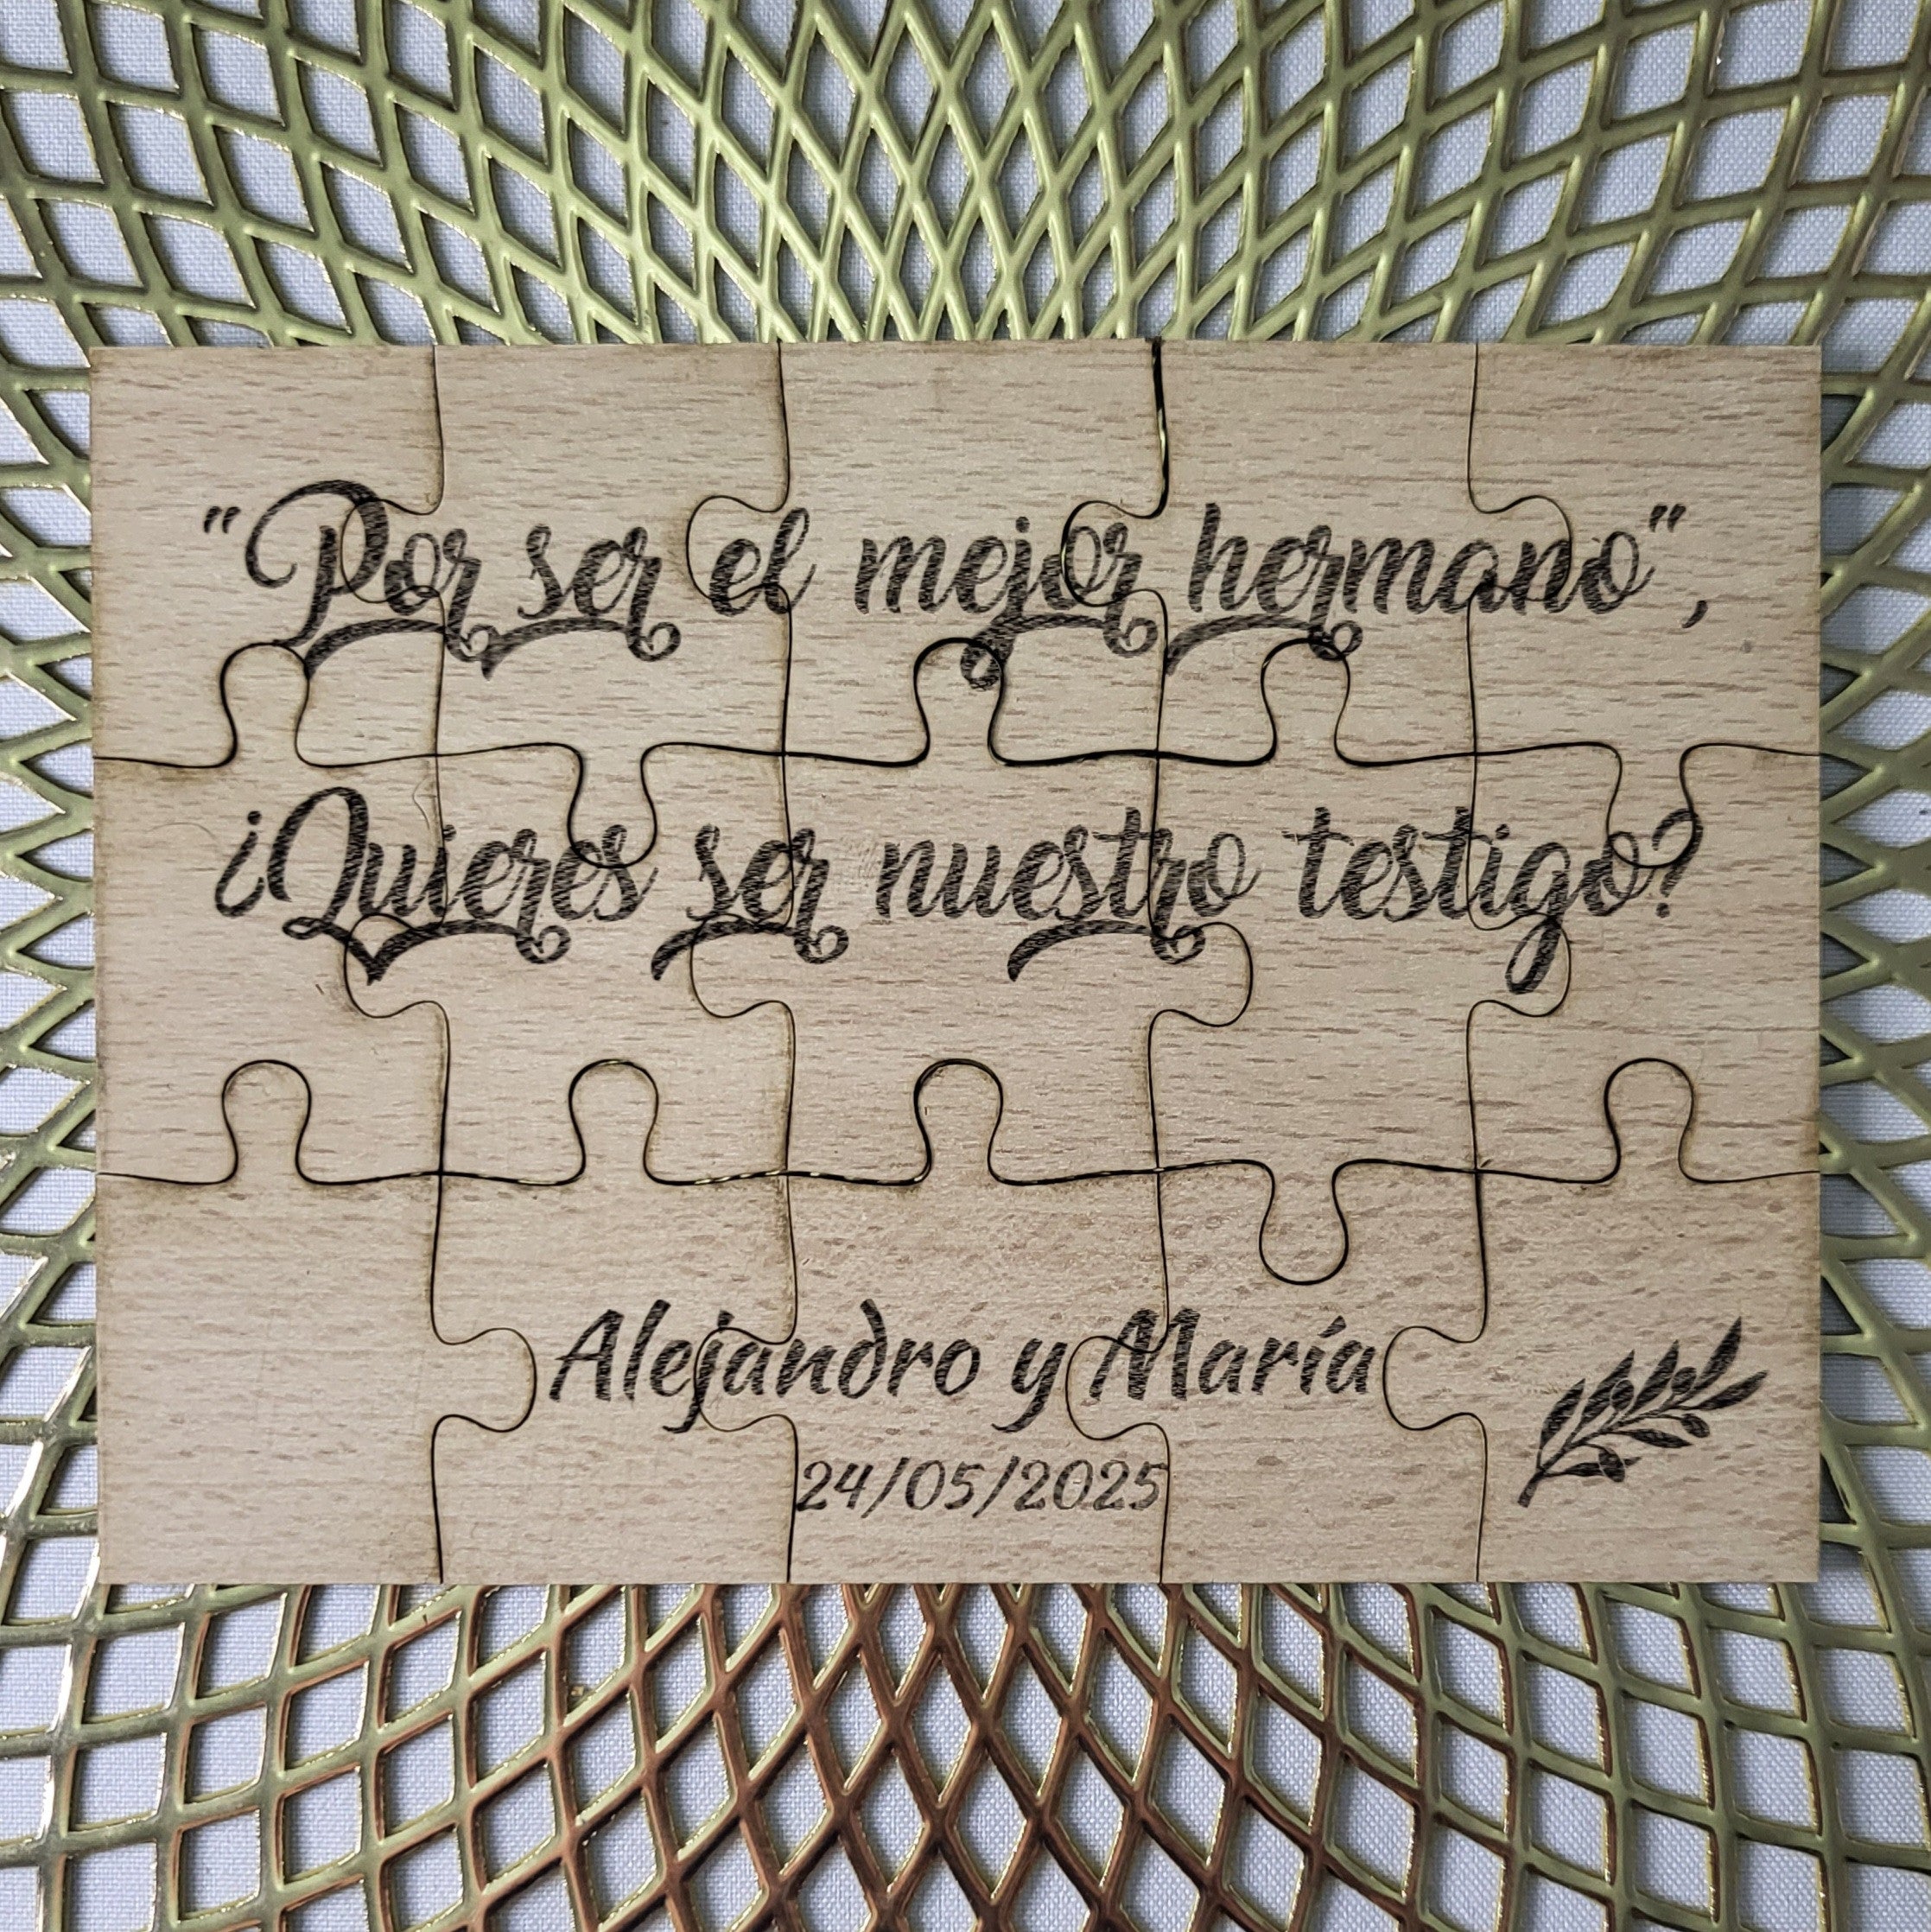 "Por ser el mejor hermano",
¿Quieres ser nuestro testigo?
Alejandro y María
24/05/2025